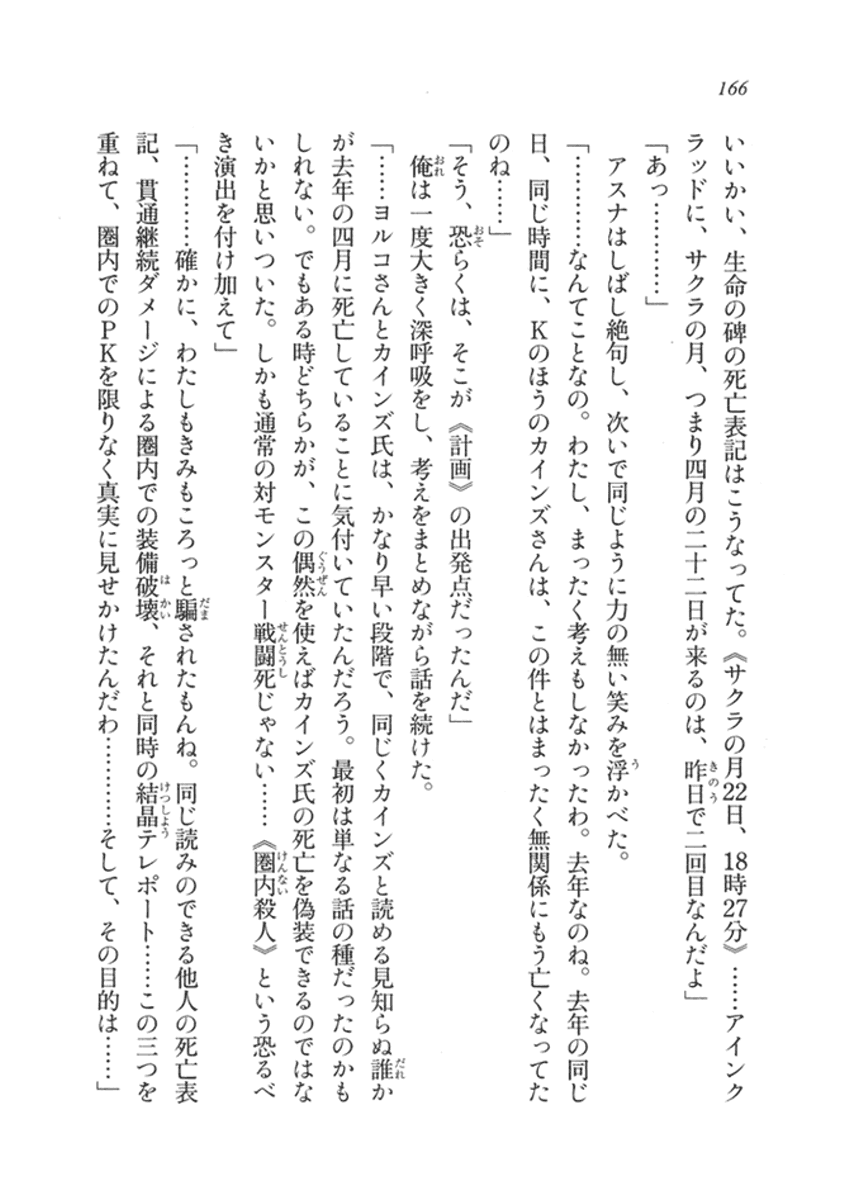 166
いいかい、生命の碑の死亡表記はこうなってた。《サクラの月22日、18時27分》……アインク
ラッドに、サクラの月、つまり四月の二十二日が来るのは、昨日で二回目なんだよ」
「あっ…………」
アスナはしばし絶句し、次いで同じように力の無い笑みを浮かべた。
「…………なんてことなの。わたし、まったく考えもしなかったわ。去年なのね。去年の同じ
日、同じ時間に、Kのほうのカインズさんは、この件とはまったく無関係にもう亡くなってた
のね……」
「そう、恐らくは、そこが《計画》の出発点だったんだ」
俺は一度大きく深呼吸をし、考えをまとめながら話を続けた。
「……ヨルコさんとカインズ氏は、かなり早い段階で、同じくカインズと読める見知らぬ誰か
が去年の四月に死亡していることに気付いていたんだろう。最初は単なる話の種だったのかも
しれない。でもある時どちらかが、この偶然を使えばカインズ氏の死亡を偽装できるのではな
いかと思いついた。しかも通常の対モンスター戦闘死じゃない……《圏内殺人》という恐るべ
き演出を付け加えて」
「…………確かに、わたしもきみもころっと騙されたもんね。同じ読みのできる他人の死亡表
記、貫通継続ダメージによる圏内での装備破壊、それと同時の結晶テレポート……この三つを
重ねて、圏内でのPKを限りなく真実に見せかけたんだわ…………そして、その目的は……」